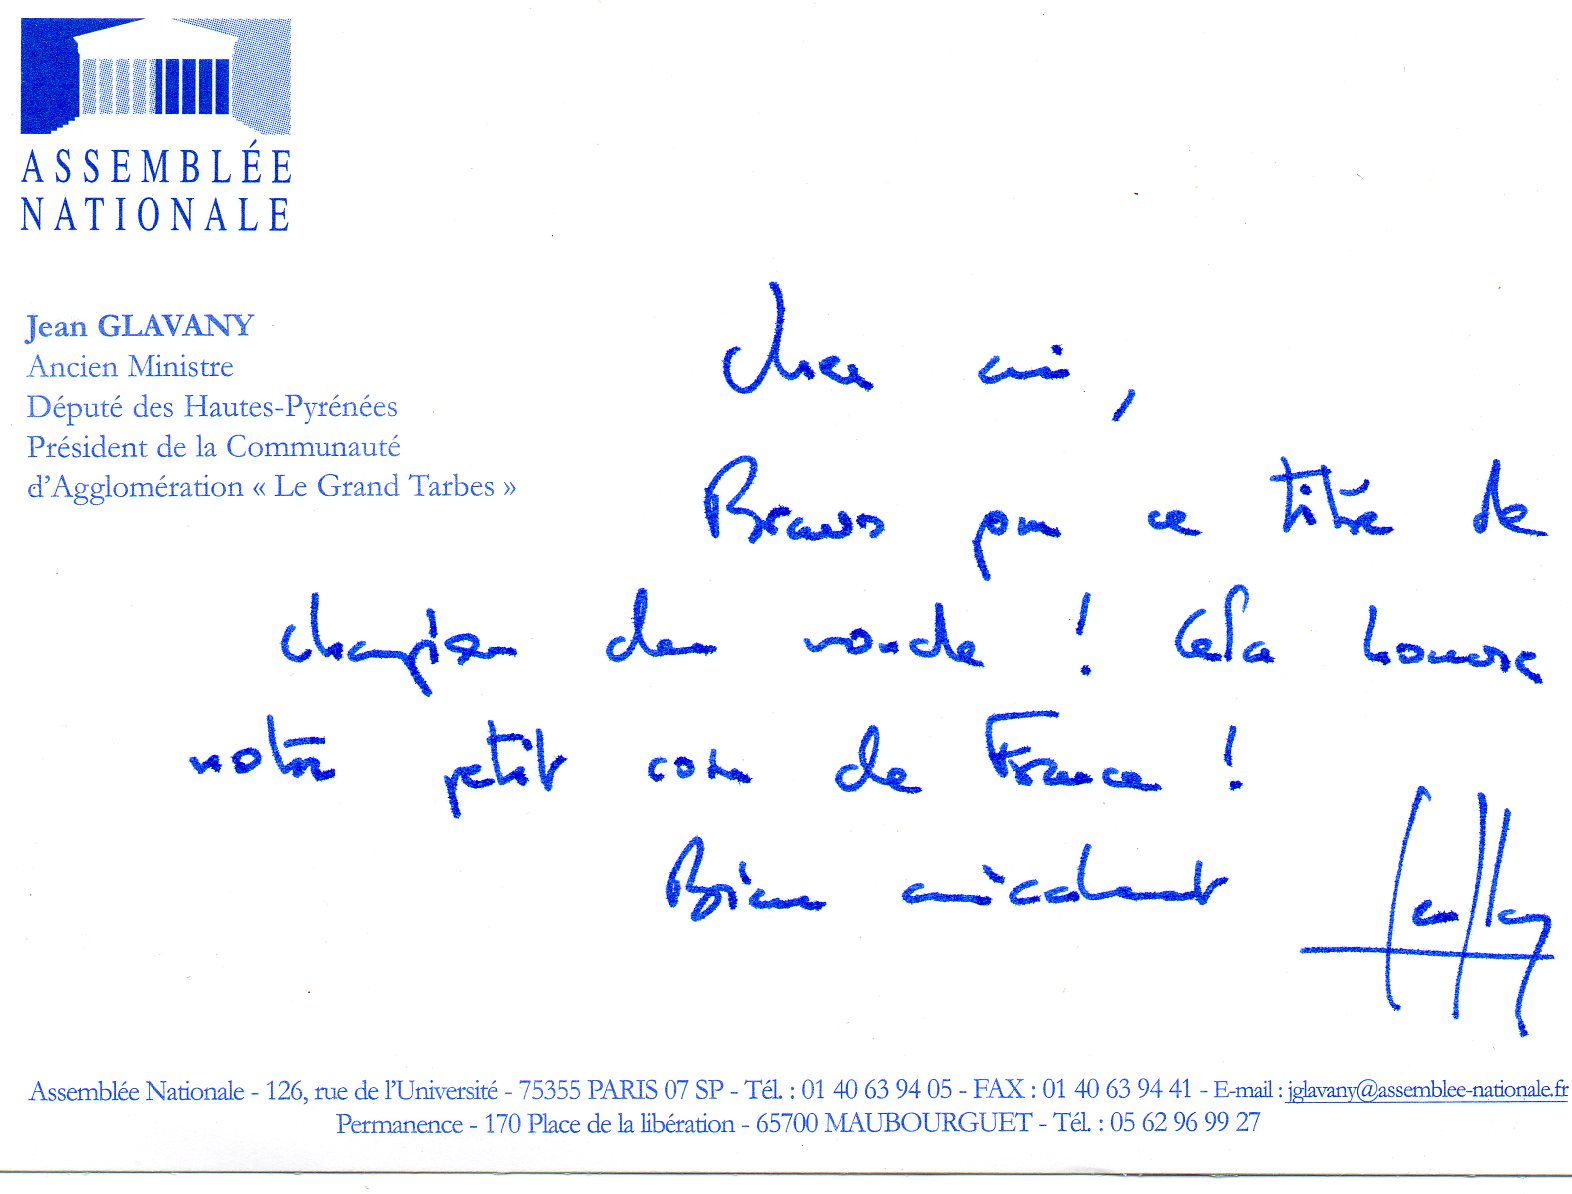 ASSEMBLÉE
NATIONALE
Jean GLAVANY
Ancien Ministre
Député des Hautes-Pyrénées
Président de la Communauté
d'Agglomération « Le Grand Tarbes »
Cher ami,
Bravo pour ce titre de
champion du monde ! Cela honore
notre petit coin de France !
Bien amicalement
Assemblée Nationale - 126, rue de l'Université - 75355 PARIS 07 SP - Tél. : 01 40 63 94 05 - FAX : 01 40 63 94 41 - E-mail : jglavany@assemblee-nationale.fr
Permanence - 170 Place de la libération - 65700 MAUBOURGUET - Tél. : 05 62 96 99 27